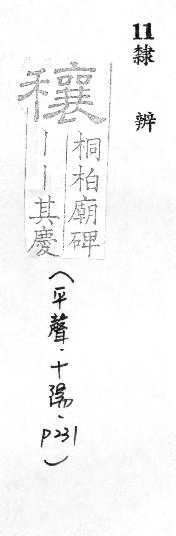 11隸 辨
穰
桐柏廟碑
｜｜其慶
（平聲．十陽．P231）